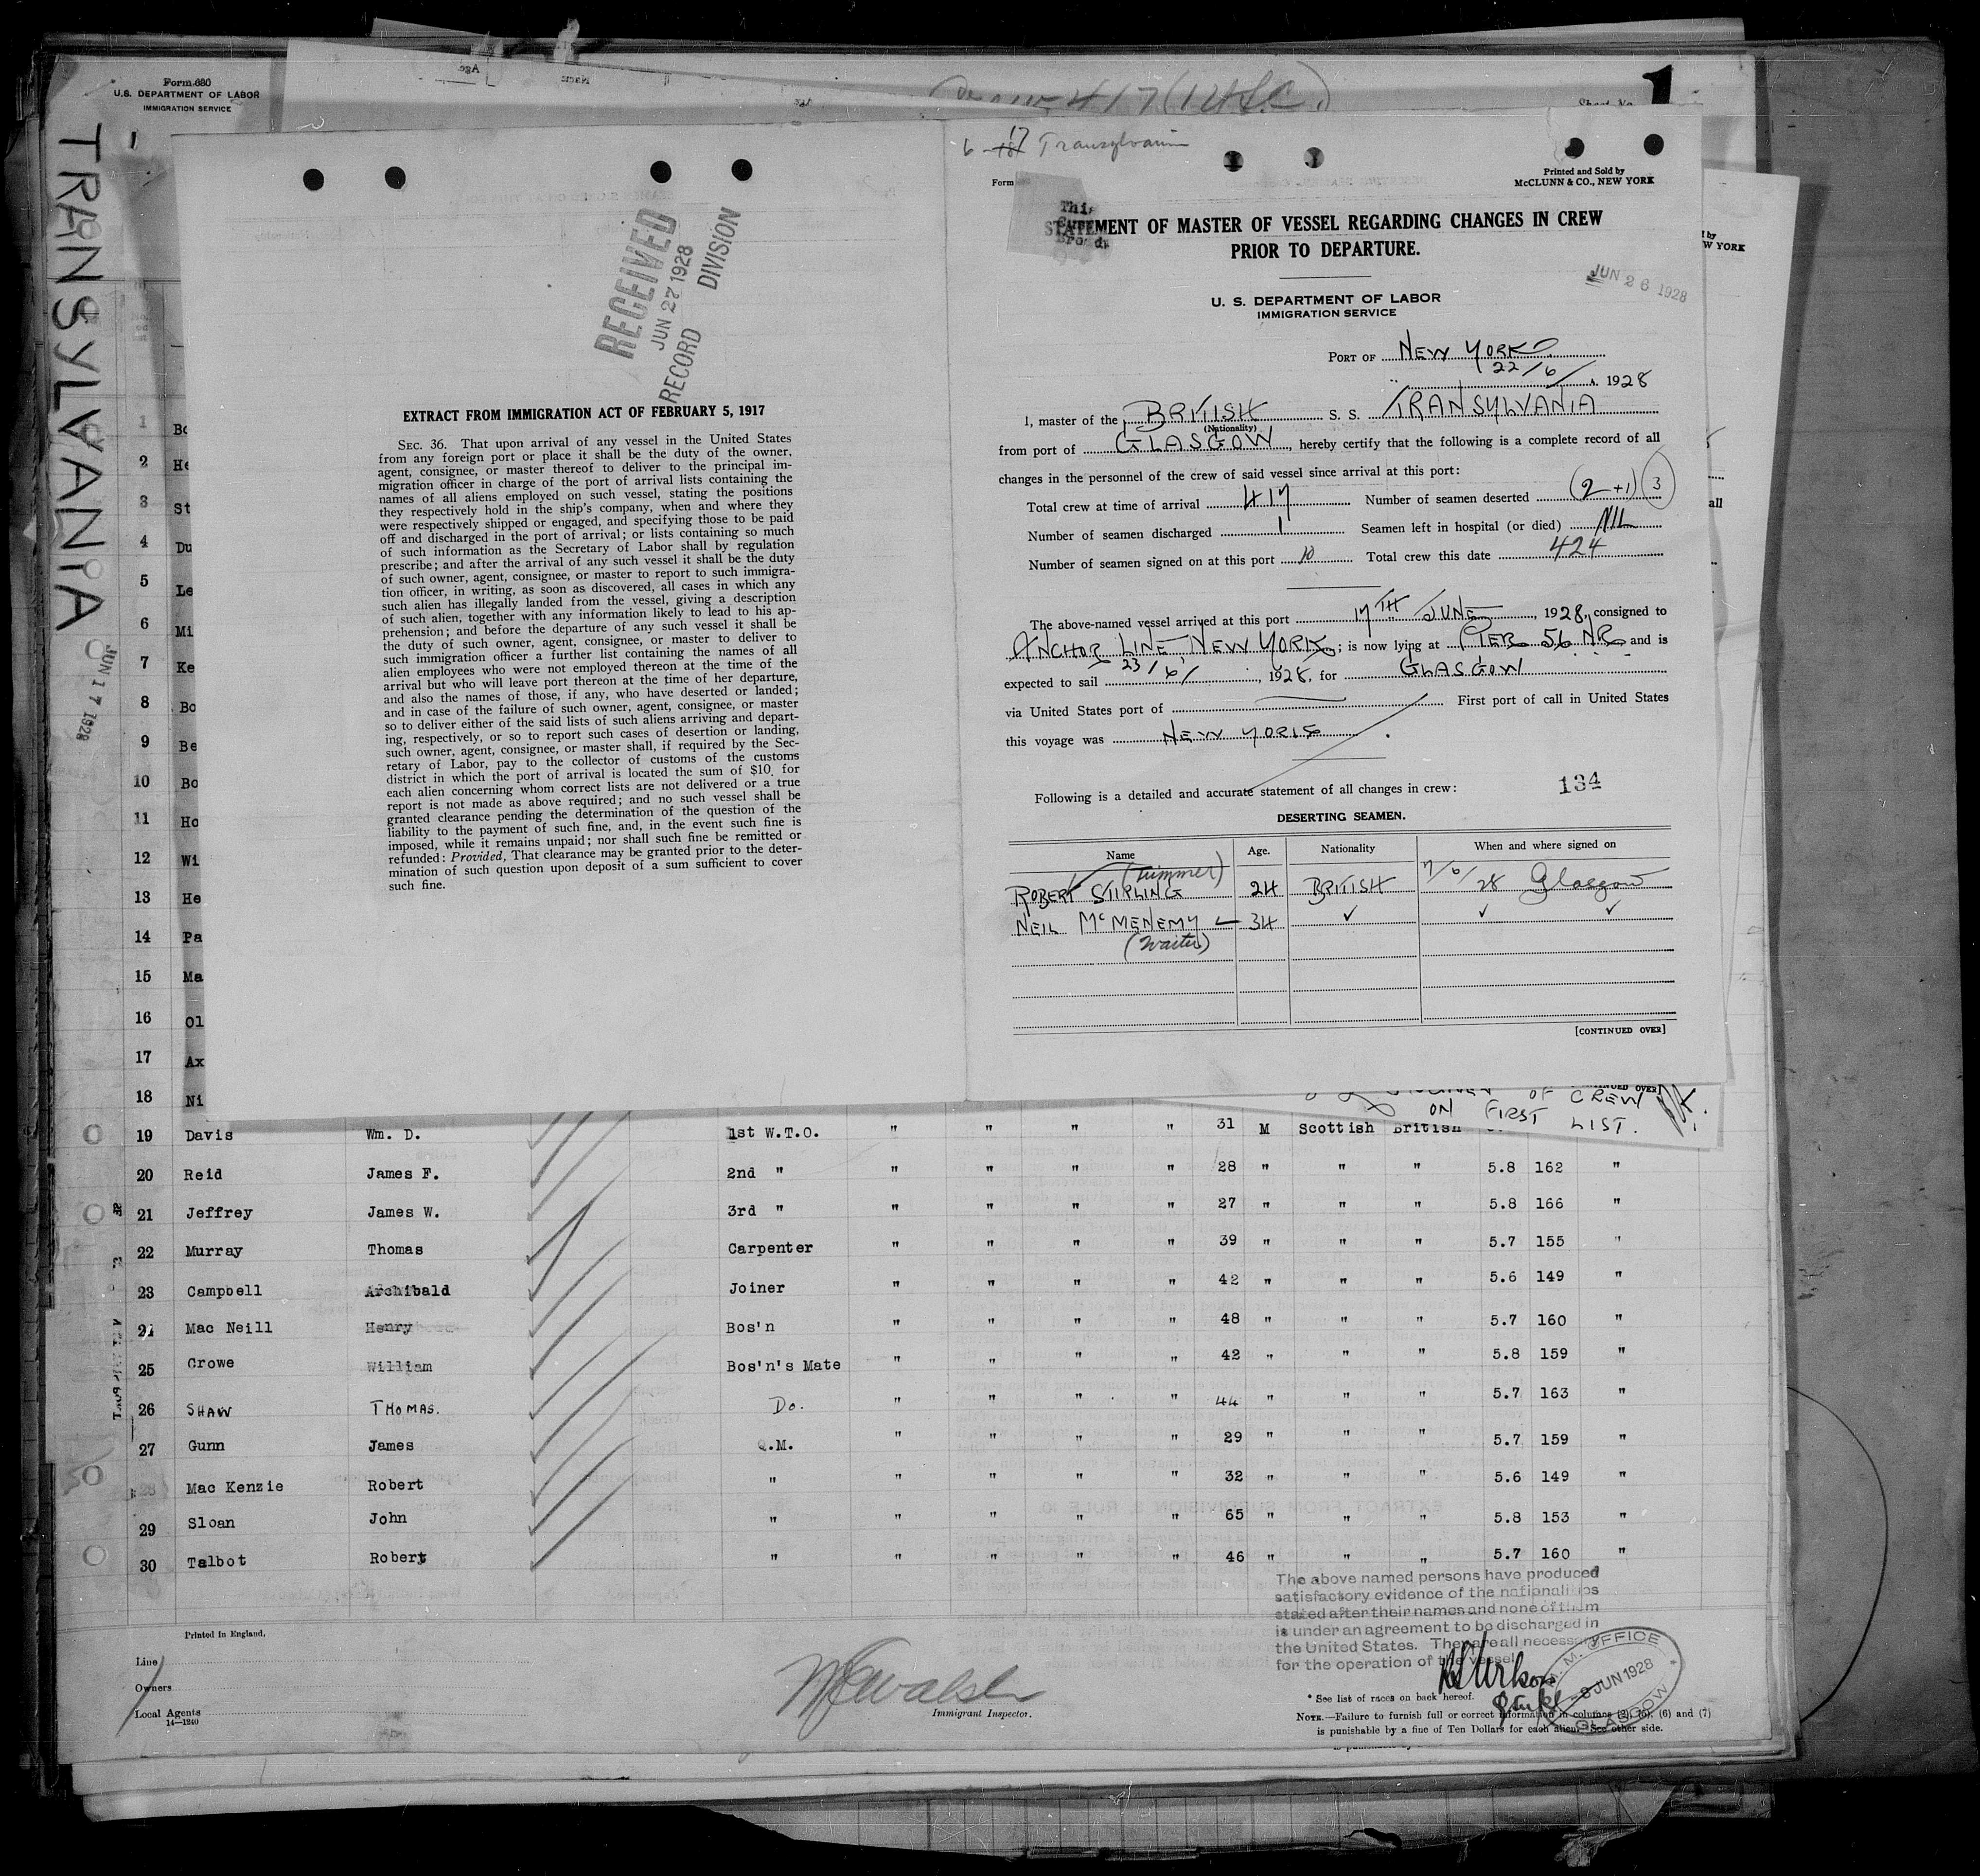 Form 680
U.S. DEPARTMENT OF LABOR
IMMIGRATION SERVICE
TRANSYLVANIA
JUN 17 1928
1
RECEIVED
JUN 27 1928
RECORD DIVISION
EXTRACT FROM IMMIGRATION ACT OF FEBRUARY 5, 1917
SEC. 36. That upon arrival of any vessel in the United States
from any foreign port or place it shall be the duty of the owner,
agent, consignee, or master thereof to deliver to the principal im-
migration officer in charge of the port of arrival lists containing the
names of all aliens employed on such vessel, stating the positions
they respectively hold in the ship's company, when and where they
were respectively shipped or engaged, and specifying those to be paid
off and discharged in the port of arrival; or lists containing so much
of such information as the Secretary of Labor shall by regulation
prescribe; and after the arrival of any such vessel it shall be the duty
of such owner, agent, consignee, or master to report to such immigra-
tion officer, in writing, as soon as discovered, all cases in which any
such alien has illegally landed from the vessel, giving a description
of such alien, together with any information likely to lead to his ap-
prehension; and before the departure of any such vessel it shall be
the duty of such owner, agent, consignee, or master to deliver to
such immigration officer a further list containing the names of all
alien employees who were not employed thereon at the time of the
arrival but who will leave port thereon at the time of her departure,
and also the names of those, if any, who have deserted or landed;
and in case of the failure of such owner, agent, consignee, or master
so to deliver either of the said lists of such aliens arriving and depart-
ing, respectively, or so to report such cases of desertion or landing,
such owner, agent, consignee, or master shall, if required by the Sec-
retary of Labor, pay to the collector of customs of the customs
district in which the port of arrival is located the sum of $10 for
each alien concerning whom correct lists are not delivered or a true
report is not made as above required; and no such vessel shall be
granted clearance pending the determination of the question of the
liability to the payment of such fine, and, in the event such fine is
imposed, while it remains unpaid; nor shall such fine be remitted or
refunded: Provided, That clearance may be granted prior to the deter-
mination of such question upon deposit of a sum sufficient to cover
such fine.
6 - 17 Transylvania
Form
Printed and Sold by
McCLUNN & CO., NEW YORK
STATEMENT OF MASTER OF VESSEL REGARDING CHANGES IN CREW
PRIOR TO DEPARTURE.
JUN 26 1928
U. S. DEPARTMENT OF LABOR
IMMIGRATION SERVICE
PORT OF NEW YORK
22/6/ 1928
I, master of the BRITISH S. S. TRANSYLVANIA
(Nationality)
from port of GLASGOW, hereby certify that the following is a complete record of all
changes in the personnel of the crew of said vessel since arrival at this port:
Total crew at time of arrival 417 Number of seamen deserted (2+1) 3
Number of seamen discharged 1 Seamen left in hospital (or died) NIL
Number of seamen signed on at this port 10 Total crew this date 424
The above-named vessel arrived at this port 17TH JUNE, 1928, consigned to
ANCHOR LINE, NEW YORK; is now lying at PIER 56 NR and is
expected to sail 23/6/, 1928, for GLASGOW
via United States port of First port of call in United States
this voyage was NEW YORK.
Following is a detailed and accurate statement of all changes in crew: 134
DESERTING SEAMEN.
Name Age. Nationality When and where signed on
(trimmer)
ROBERT STIRLING 24 BRITISH 7/6/28 Glasgow
NEIL McMENEMY 34 ✓ ✓ ✓
(Waiter)
[CONTINUED OVER]
OF CREW
ON FIRST LIST.
1 Bo
2 He
3 St
4 Du
5 Le
6 Mi
7 Ke
8 Bo
9 Be
10 Bo
11 Ho
12 Wi
13 He
14 Pa
15 Ma
16 Ol
17 Ax
18 Ni
19 Davis Wm. D. 1st W.T.O. " " " " 31 M Scottish British
20 Reid James F. 2nd " " " " " 28 " " " 5.8 162 "
21 Jeffrey James W. 3rd " " " " " 27 " " " 5.8 166 "
22 Murray Thomas Carpenter " " " " 39 " " " 5.7 155 "
23 Campbell Archibald Joiner " " " " 42 " " " 5.6 149 "
24 Mac Neill Henry Bos'n " " " " 48 " " " 5.7 160 "
25 Crowe William Bos'n's Mate " " " " 42 " " " 5.8 159 "
26 SHAW THOMAS. Do. " " " " 44 " " " 5.7 163 "
27 Gunn James Q.M. " " " " 29 " " " 5.7 159 "
28 Mac Kenzie Robert " " " " " 32 " " " 5.6 149 "
29 Sloan John " " " " " 65 " " " 5.8 153 "
30 Talbot Robert " " " " " 46 " " " 5.7 160 "
The above named persons have produced
satisfactory evidence of the nationalities
stated after their names and none of them
is under an agreement to be discharged in
the United States. They are all necessary
for the operation of the vessel
Printed in England.
Line
Owners
Local Agents
14—1240
Immigrant Inspector.
M. M. OFFICE
-8 JUN 1928
GLASGOW
* See list of races on back hereof.
NOTE.—Failure to furnish full or correct information in columns (2), (5), (6) and (7)
is punishable by a fine of Ten Dollars for each alien. See other side.